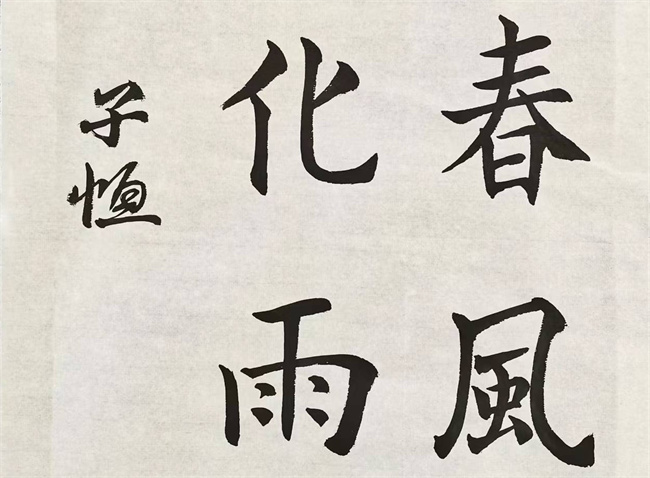 春風
化雨
子恒